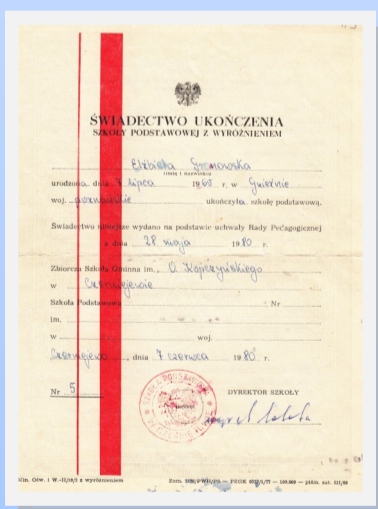 ŚWIADECTWO UKOŃCZENIA
SZKOŁY PODSTAWOWEJ Z WYRÓŻNIENIEM
Elżbieta
(imię i nazwisko)
urodzona dnia 7 lipca 1965 r. w Gnieźnie
woj. poznańskie ukończyła szkołę podstawową.
Świadectwo niniejsze wydano na podstawie uchwały Rady Pedagogicznej
z dnia 28 maja 1980 r.
Zbiorcza Szkoła Gminna im. O. Kopczyńskiego
w Czerniejewie
Szkoła Podstawowa Nr
im.
w woj.
Czerniejewo, dnia 7 czerwca 1980 r.
Nr 5 DYREKTOR SZKOŁY
SZKOŁA PODSTAWOWA
Min. Ośw. i W.-II/19/3 z wyróżnieniem